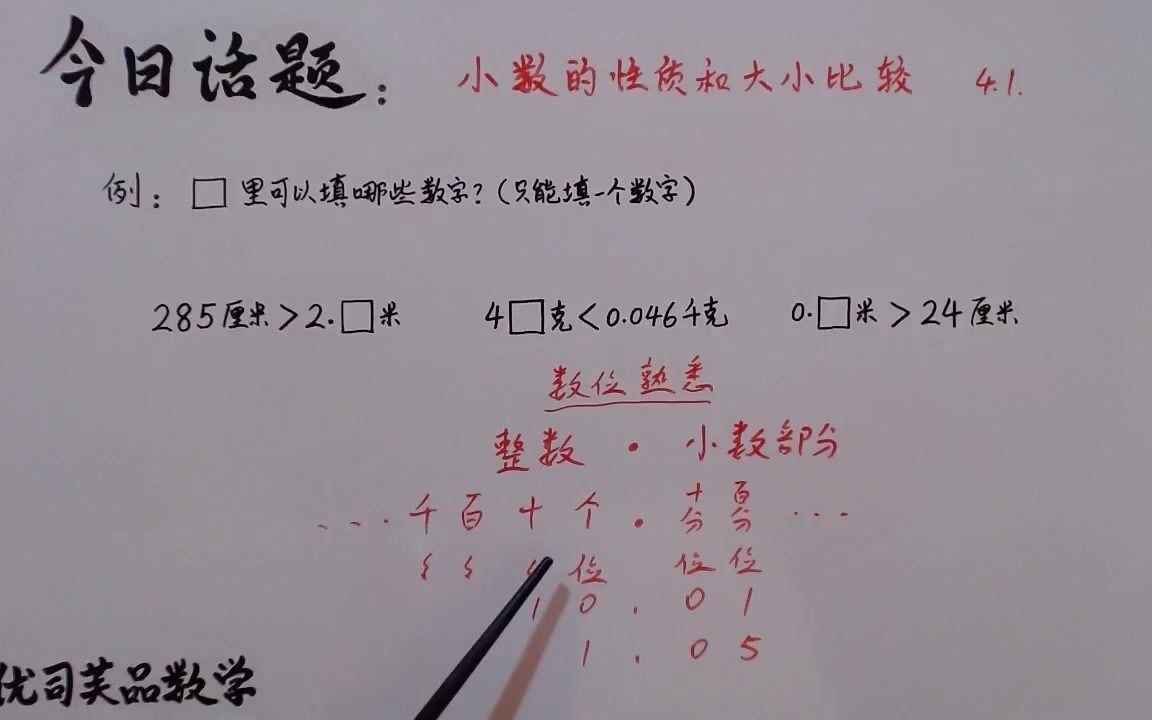 今日话题: 小数的性质和大小比较 4.1.
例: □ 里可以填哪些数字?(只能填一个数字)
285厘米>2.□米 4□克<0.046千克 0.□米>24厘米
数位熟悉
整数 · 小数部分
...千百十个.十分百分...
位 位位
10.01
1.05
优司芙品数学